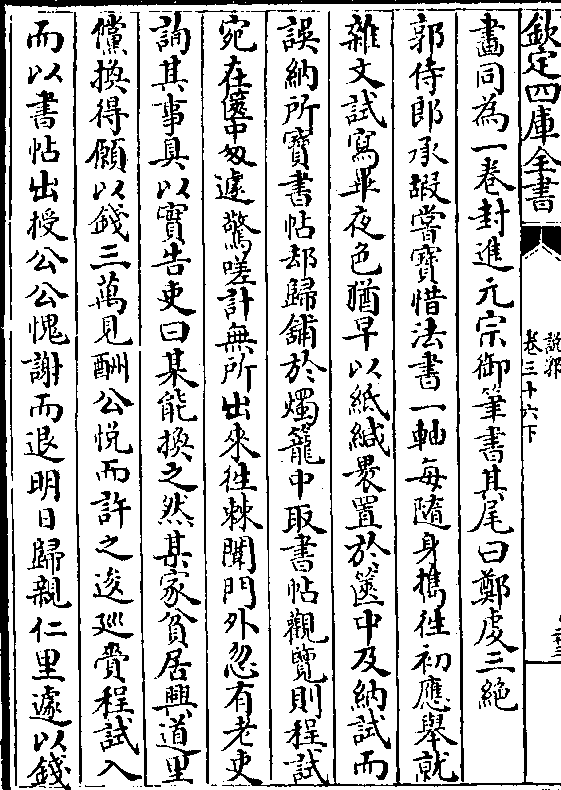 欽定四庫全書
說郛
卷三十六下
畫同為一卷封進元宗御筆書其尾曰鄭虔三絕
郭侍郎承嘏嘗寶惜法書一軸每隨身携徃初應舉就
雜文試寫畢夜色猶早以紙緘褁置於篋中及納試而
誤納所寶書帖却歸舖於燭籠中取書帖觀覽則程試
宛在篋中匆遽驚嗟計無所出來徃棘闈門外忽有老吏
詢其事具以實告吏曰某能換之然某家貧居興道里
儻換得願以錢三萬見酬公悅而許之逡廵賫程試入
而以書帖出授公公愧謝而退明日歸親仁里遽以錢